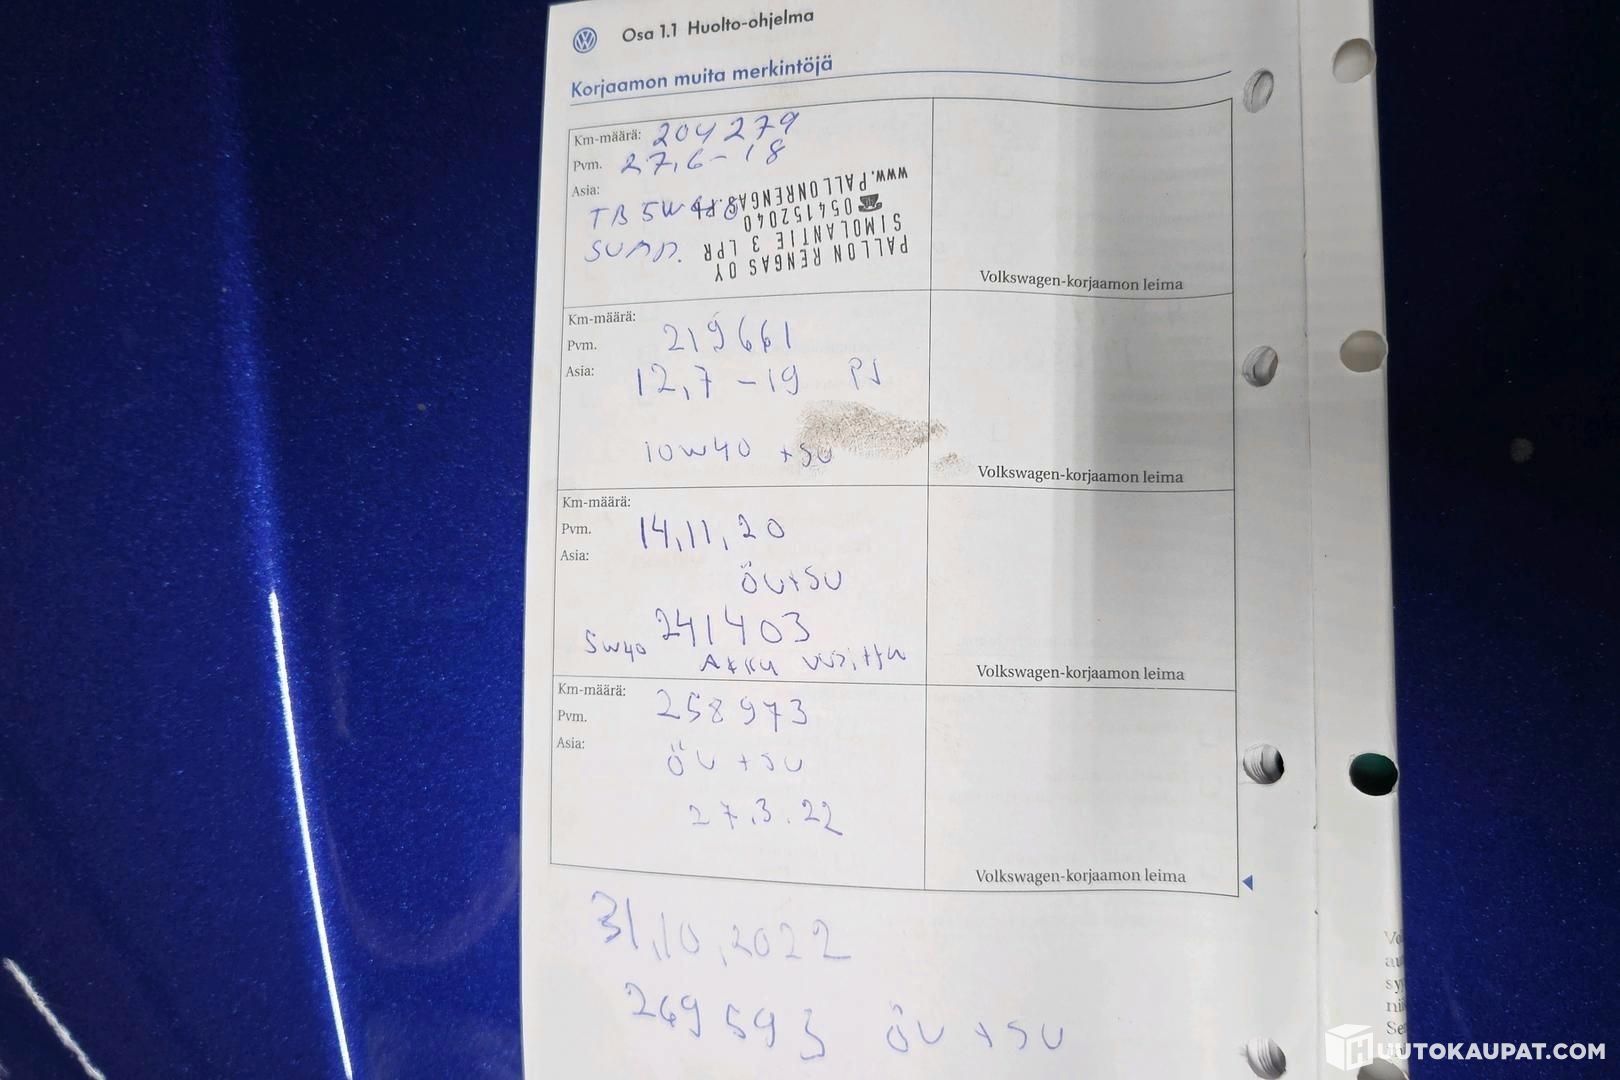 Osa 1.1 Huolto-ohjelma
Korjaamon muita merkintöjä
Km-määrä: 204279
Pvm. 27,6-18
Asia:
TB 5W40
SUOD.
PALLON RENGAS OY
SIMOLANTIE 3 LPR
054152040
www.PALLONRENGAS.FI
Volkswagen-korjaamon leima
Km-määrä:
Pvm. 219661
Asia: 12,7-19 PJ
10W40 +SU
Volkswagen-korjaamon leima
Km-määrä:
Pvm. 14,11,20
Asia:
ÖU+SU
5W40 241403
AKKU
Volkswagen-korjaamon leima
Km-määrä: 258973
Pvm.
Asia: ÖU +SU
27.3.22
Volkswagen-korjaamon leima
31,10,2022
269593 ÖU +SU
HUUTOKAUPAT.COM